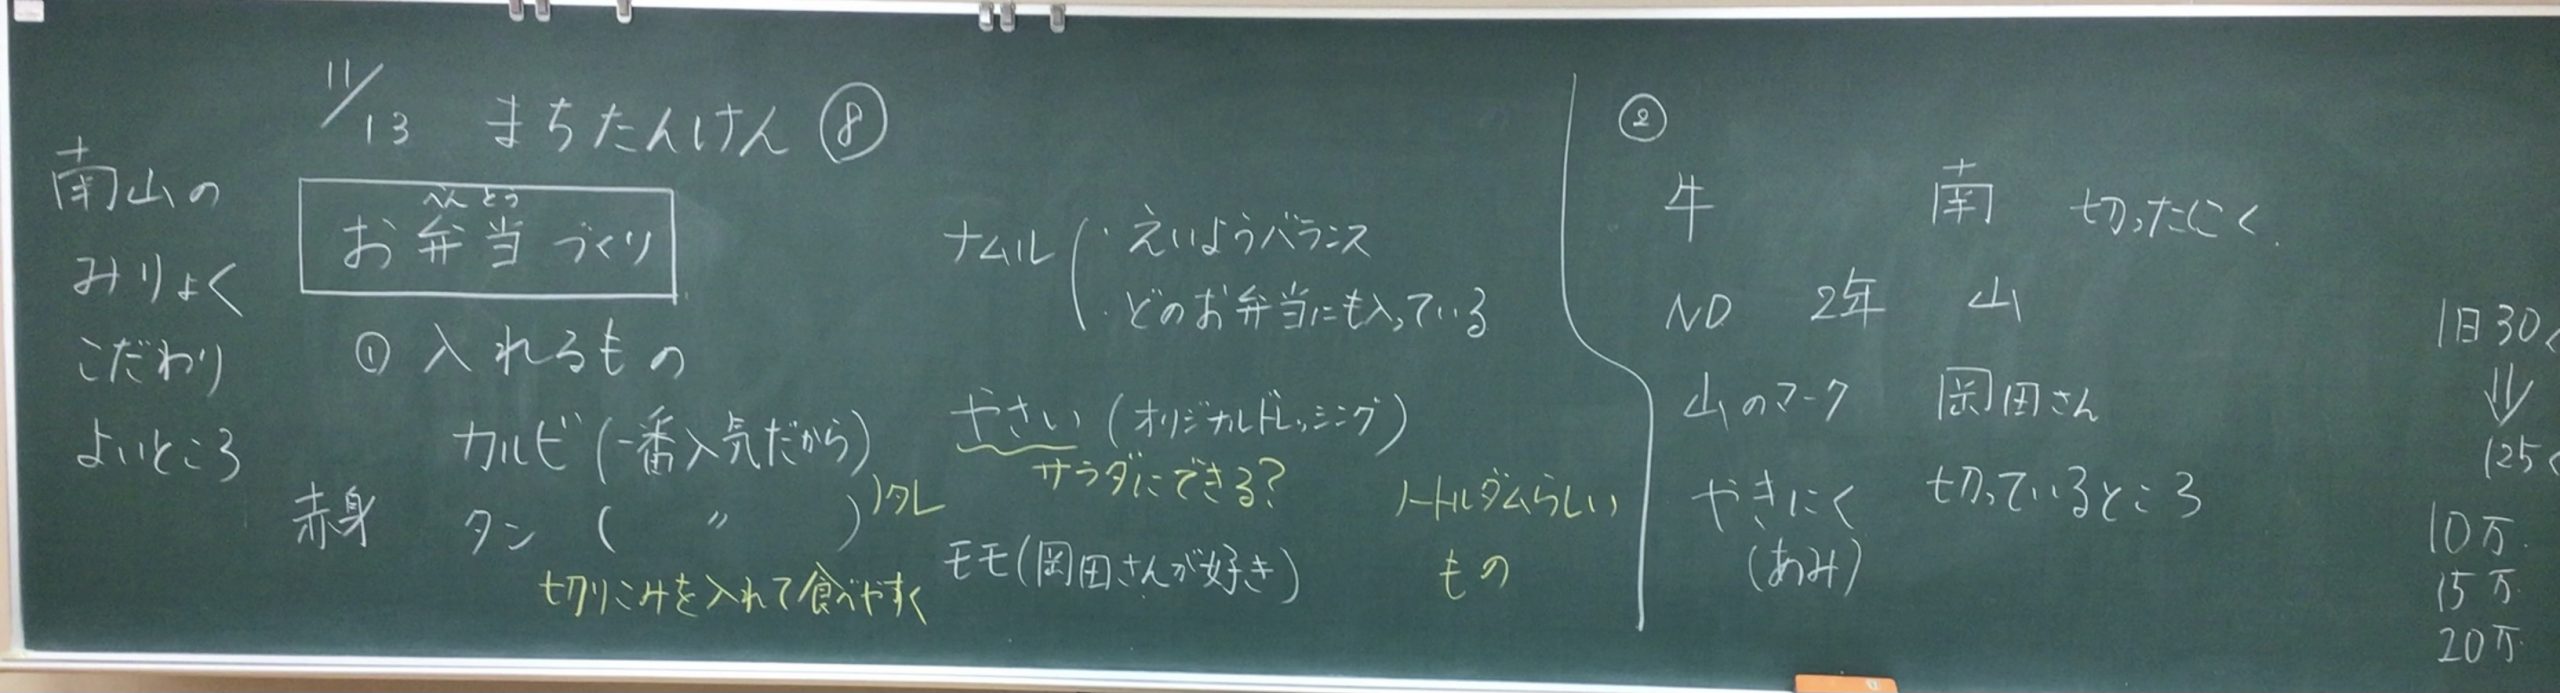 11/13 まちたんけん ⑧
南山の
みりょく
こだわり
よいところ
べんとう
お弁当づくり
① 入れるもの
カルビ (一番人気だから)
赤身 タン ( 〃 ) タレ
切りこみを入れて食べやすく
ナムル
・えいようバランス
・どのお弁当にも入っている
やさい (オリジナルドレッシング)
サラダにできる?
モモ (岡田さんが好き)
ノートルダムらしい
もの
②
牛 南 切ったにく
ND 2年 山
山のマーク 岡田さん
やきにく 切っているところ
(あみ)
1日30
⇓
125
10万
15万
20万